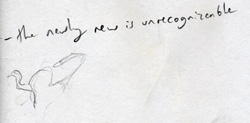 - the newly new is unrecognizable